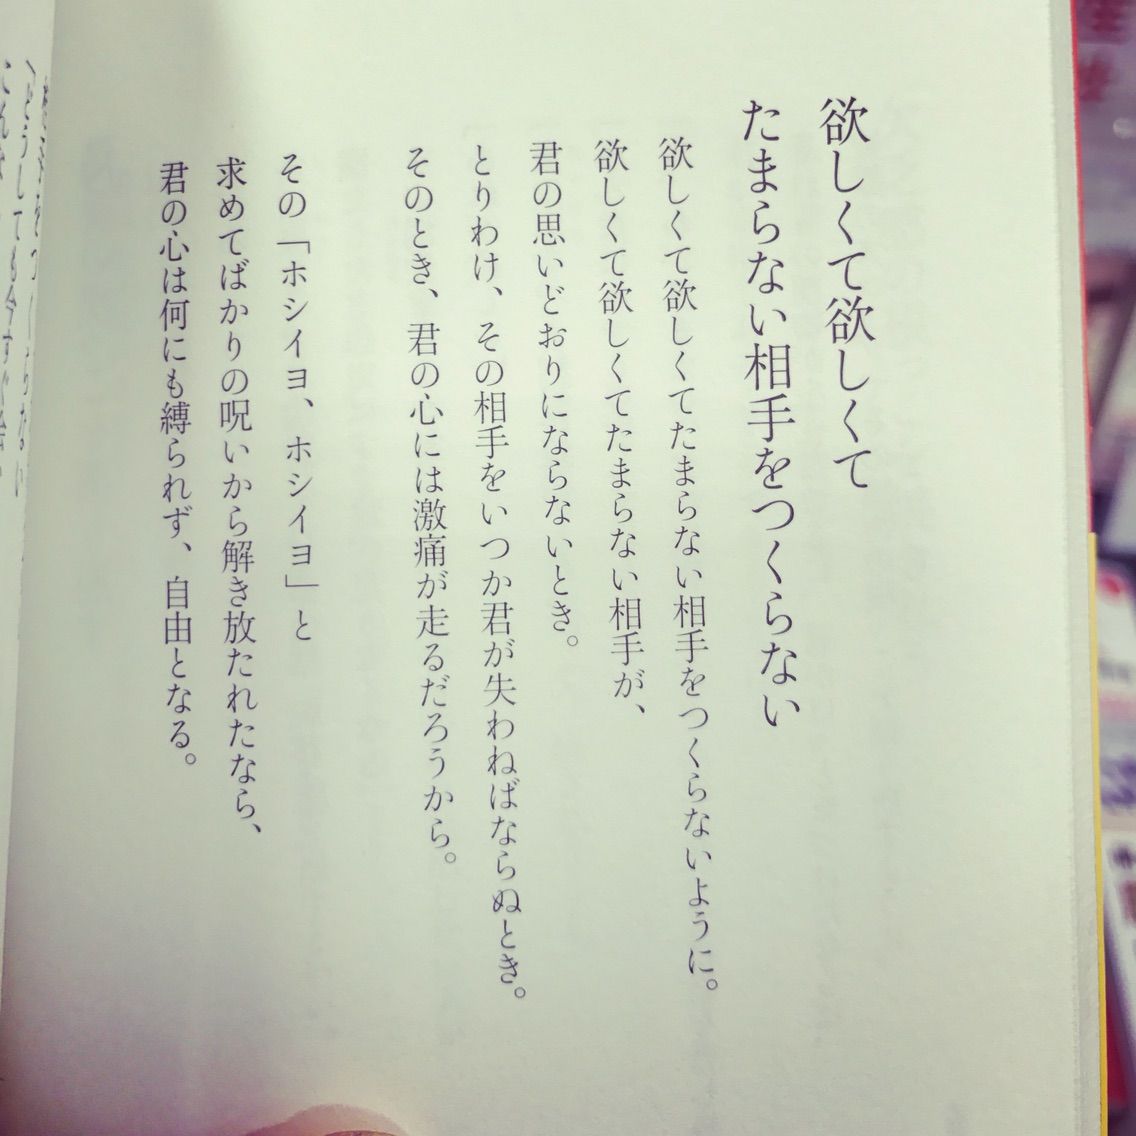 欲しくて欲しくて
たまらない相手をつくらない
欲しくて欲しくてたまらない相手をつくらないように。
欲しくて欲しくてたまらない相手が、
君の思いどおりにならないとき。
とりわけ、その相手をいつか君が失わねばならぬとき。
そのとき、君の心には激痛が走るだろうから。
その「ホシイヨ、ホシイヨ」と
求めてばかりの呪いから解き放たれたなら、
君の心は何にも縛られず、自由となる。